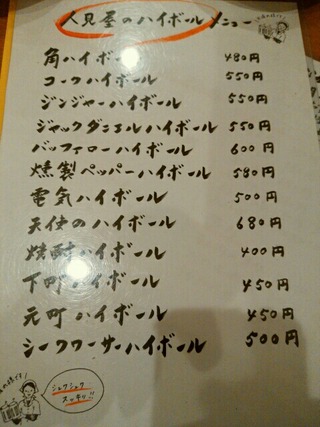 人見屋のハイボール メニュー
角ハイボール 480円
コークハイボール 550円
ジンジャーハイボール 550円
ジャックダニエルハイボール 550円
バッファローハイボール 600円
燻製ペッパーハイボール 580円
電気ハイボール 500円
天使のハイボール 680円
焼酎ハイボール 400円
下町ハイボール 450円
元町ハイボール 450円
シークワーサーハイボール 500円
シュワシュワ
スッキリ!!